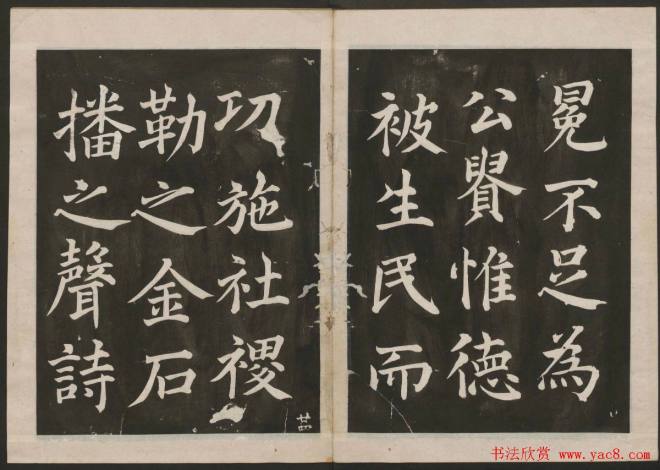 冕不足為
公貴惟德
被生民而
功施社稷
勒之金石
播之聲詩
廿四
书法欣赏 www.yac8.com